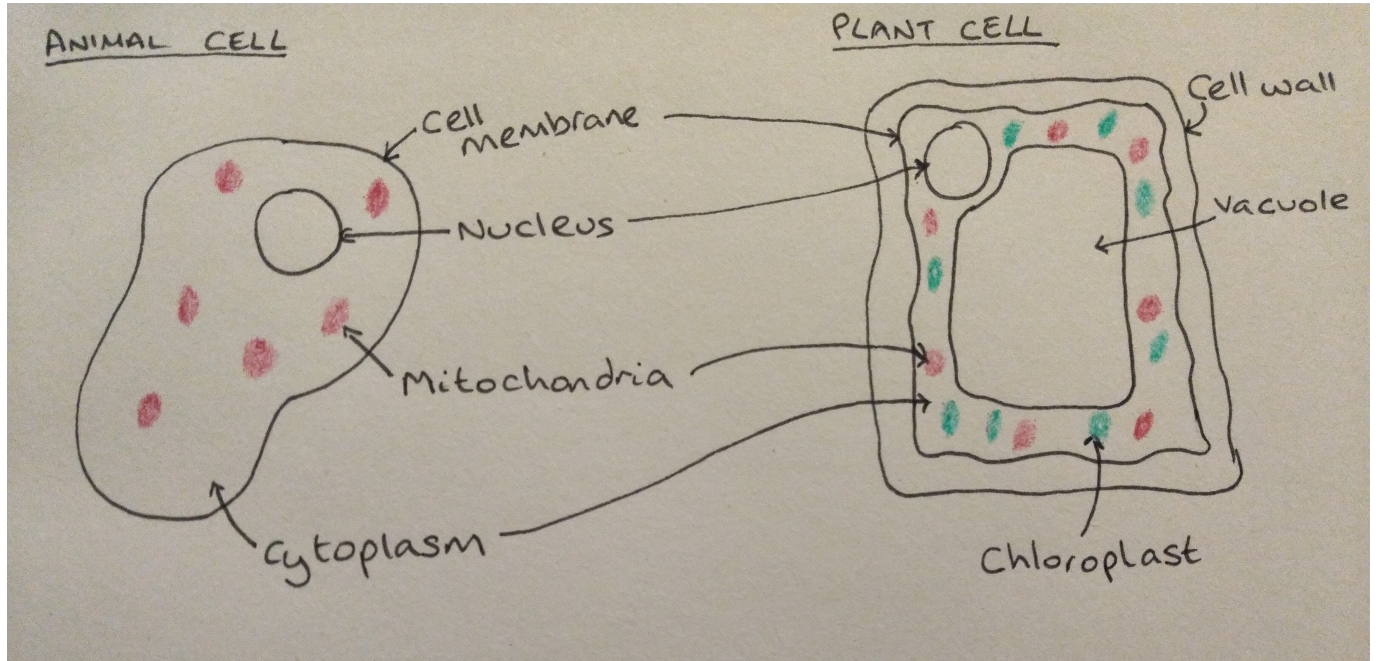 ANIMAL CELL
PLANT CELL
Cell
membrane
Cell wall
Nucleus
Vacuole
Mitochondria
Cytoplasm
Chloroplast